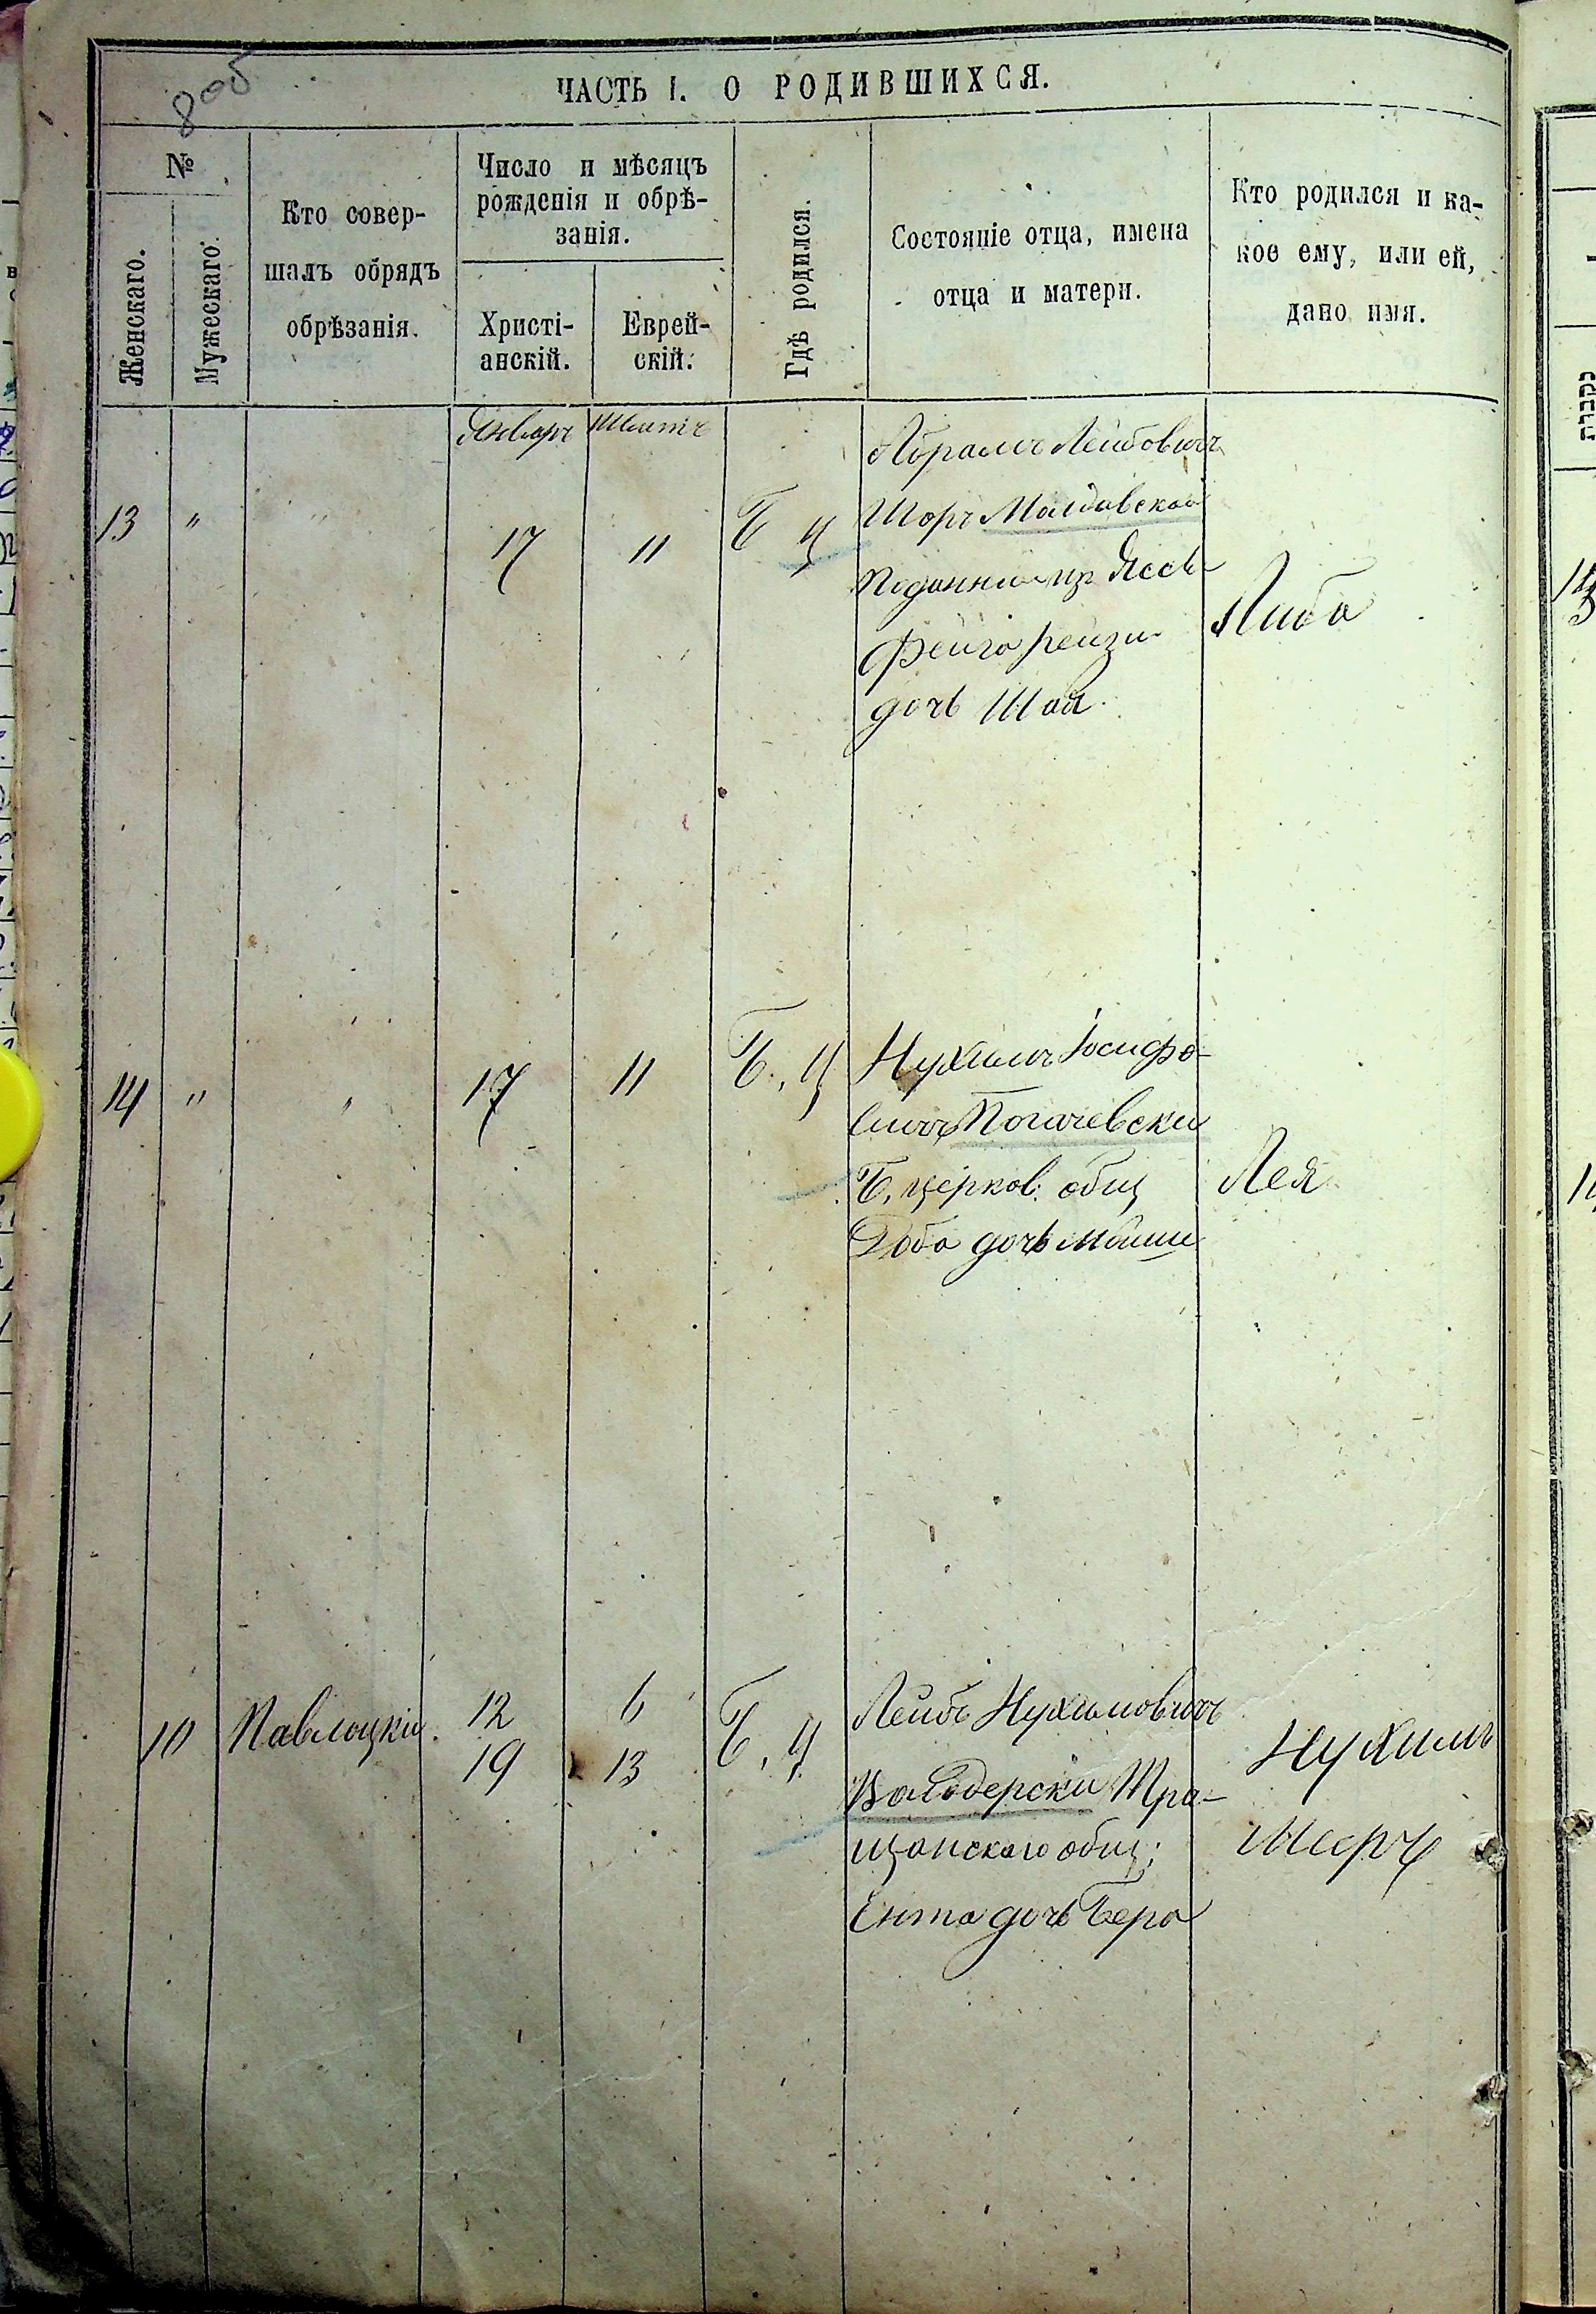 805
ЧАСТЬ I. О РОДИВШИХСЯ.
№
Женскаго.
Мужескаго.
Кто совер-
шалъ обрядъ
обрѣзанія.
Число и мѣсяцъ
рожденія и обрѣ-
занія.
Христі-
анскій.
Еврей-
скій.
Гдѣ родился.
Состояніе отца, имена
отца и матери.
Кто родился и ка-
кое ему, или ей,
дано имя.
Январь Шватъ
13 " " 17 11 Б Ц
Абрамъ Лейбовичъ
Шоръ Молдавской
Подданной изъ Яссъ
Фейга Рейзи
дочь Шаи
Либа
14 " " 17 11 Б. Ц
Нухимъ Іосифо-
вичъ Погачевски
Б. церков. общ
Доба дочь Мошии
Лея
10 Павлоцкій
12 6
19 13
Б. Ц
Лейбъ Нухимовичъ
Володерски Тра-
щанскаго общ;
Ента дочь Бера
Нухимъ
Мееръ